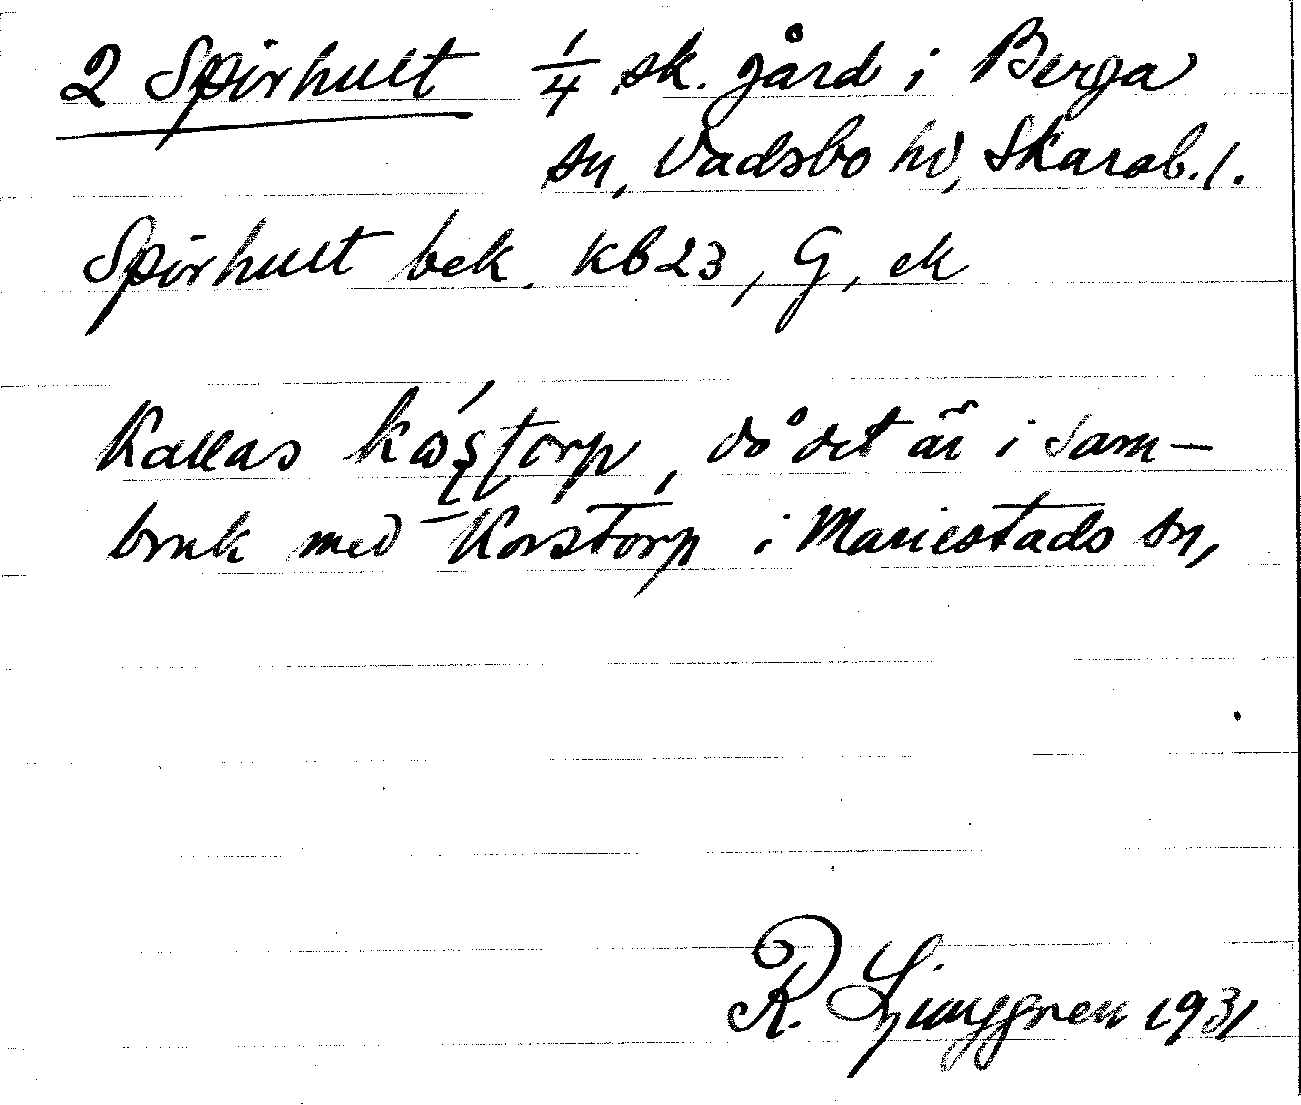 2 Spirhult 1/4 sk. gård i Berga
sn, Vadsbo hd, Skarab. l.
Spirhult bek. KB 23, G, ek
Kallas torp, då det är i Sam-
bruk med Korstorp i Mariestads sn,
R. Ljunggren 1931